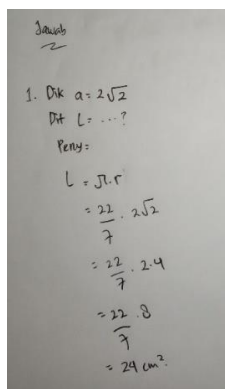 Jawab
1. Dik a = 2√2
Dit L = ...?
Peny =
L = π.r
= 22/7 . 2√2
= 22/7 . 2.4
= 22/7 . 8
= 24 cm².